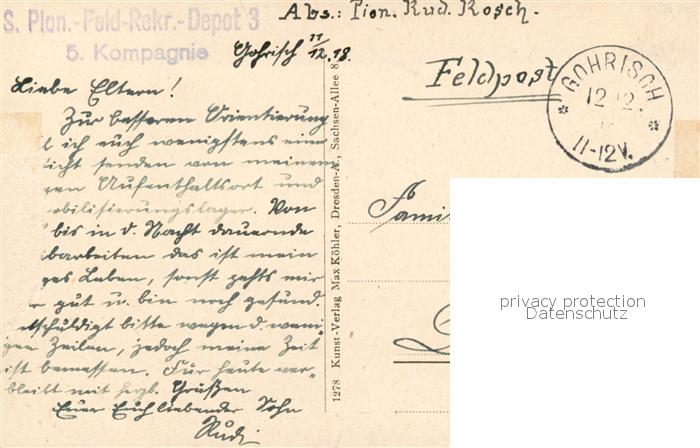 S. Pion.-Feld-Rekr.-Depot 3
5. Kompagnie
Abs.: Pion. Rud. Kosch.
Gohrisch 11/12.18.
Feldpost
GOHRISCH
12.12.
11-12V.
Liebe Eltern!
Zur besseren Orientierung
ich euch wenigstens eine
icht senden von meinem
en Aufenthaltsort und
obilisierungslager. Von
bis in d. Nacht dauernde
barbeiten das ist mein
ges Leben, sonst gehts mir
r gut u. bin noch gesund.
tschuldigt bitte wegen d. weni
gen Zeilen, jedoch meine Zeit
ist bemessen. Für heute ver-
bleibt mit herzl. Grüßen
Euer Euch liebender Sohn
Rudi
1278 Kunst-Verlag Max Köhler, Dresden-A., Sachsen-Allee 8
Fami
privacy protection
Datenschutz